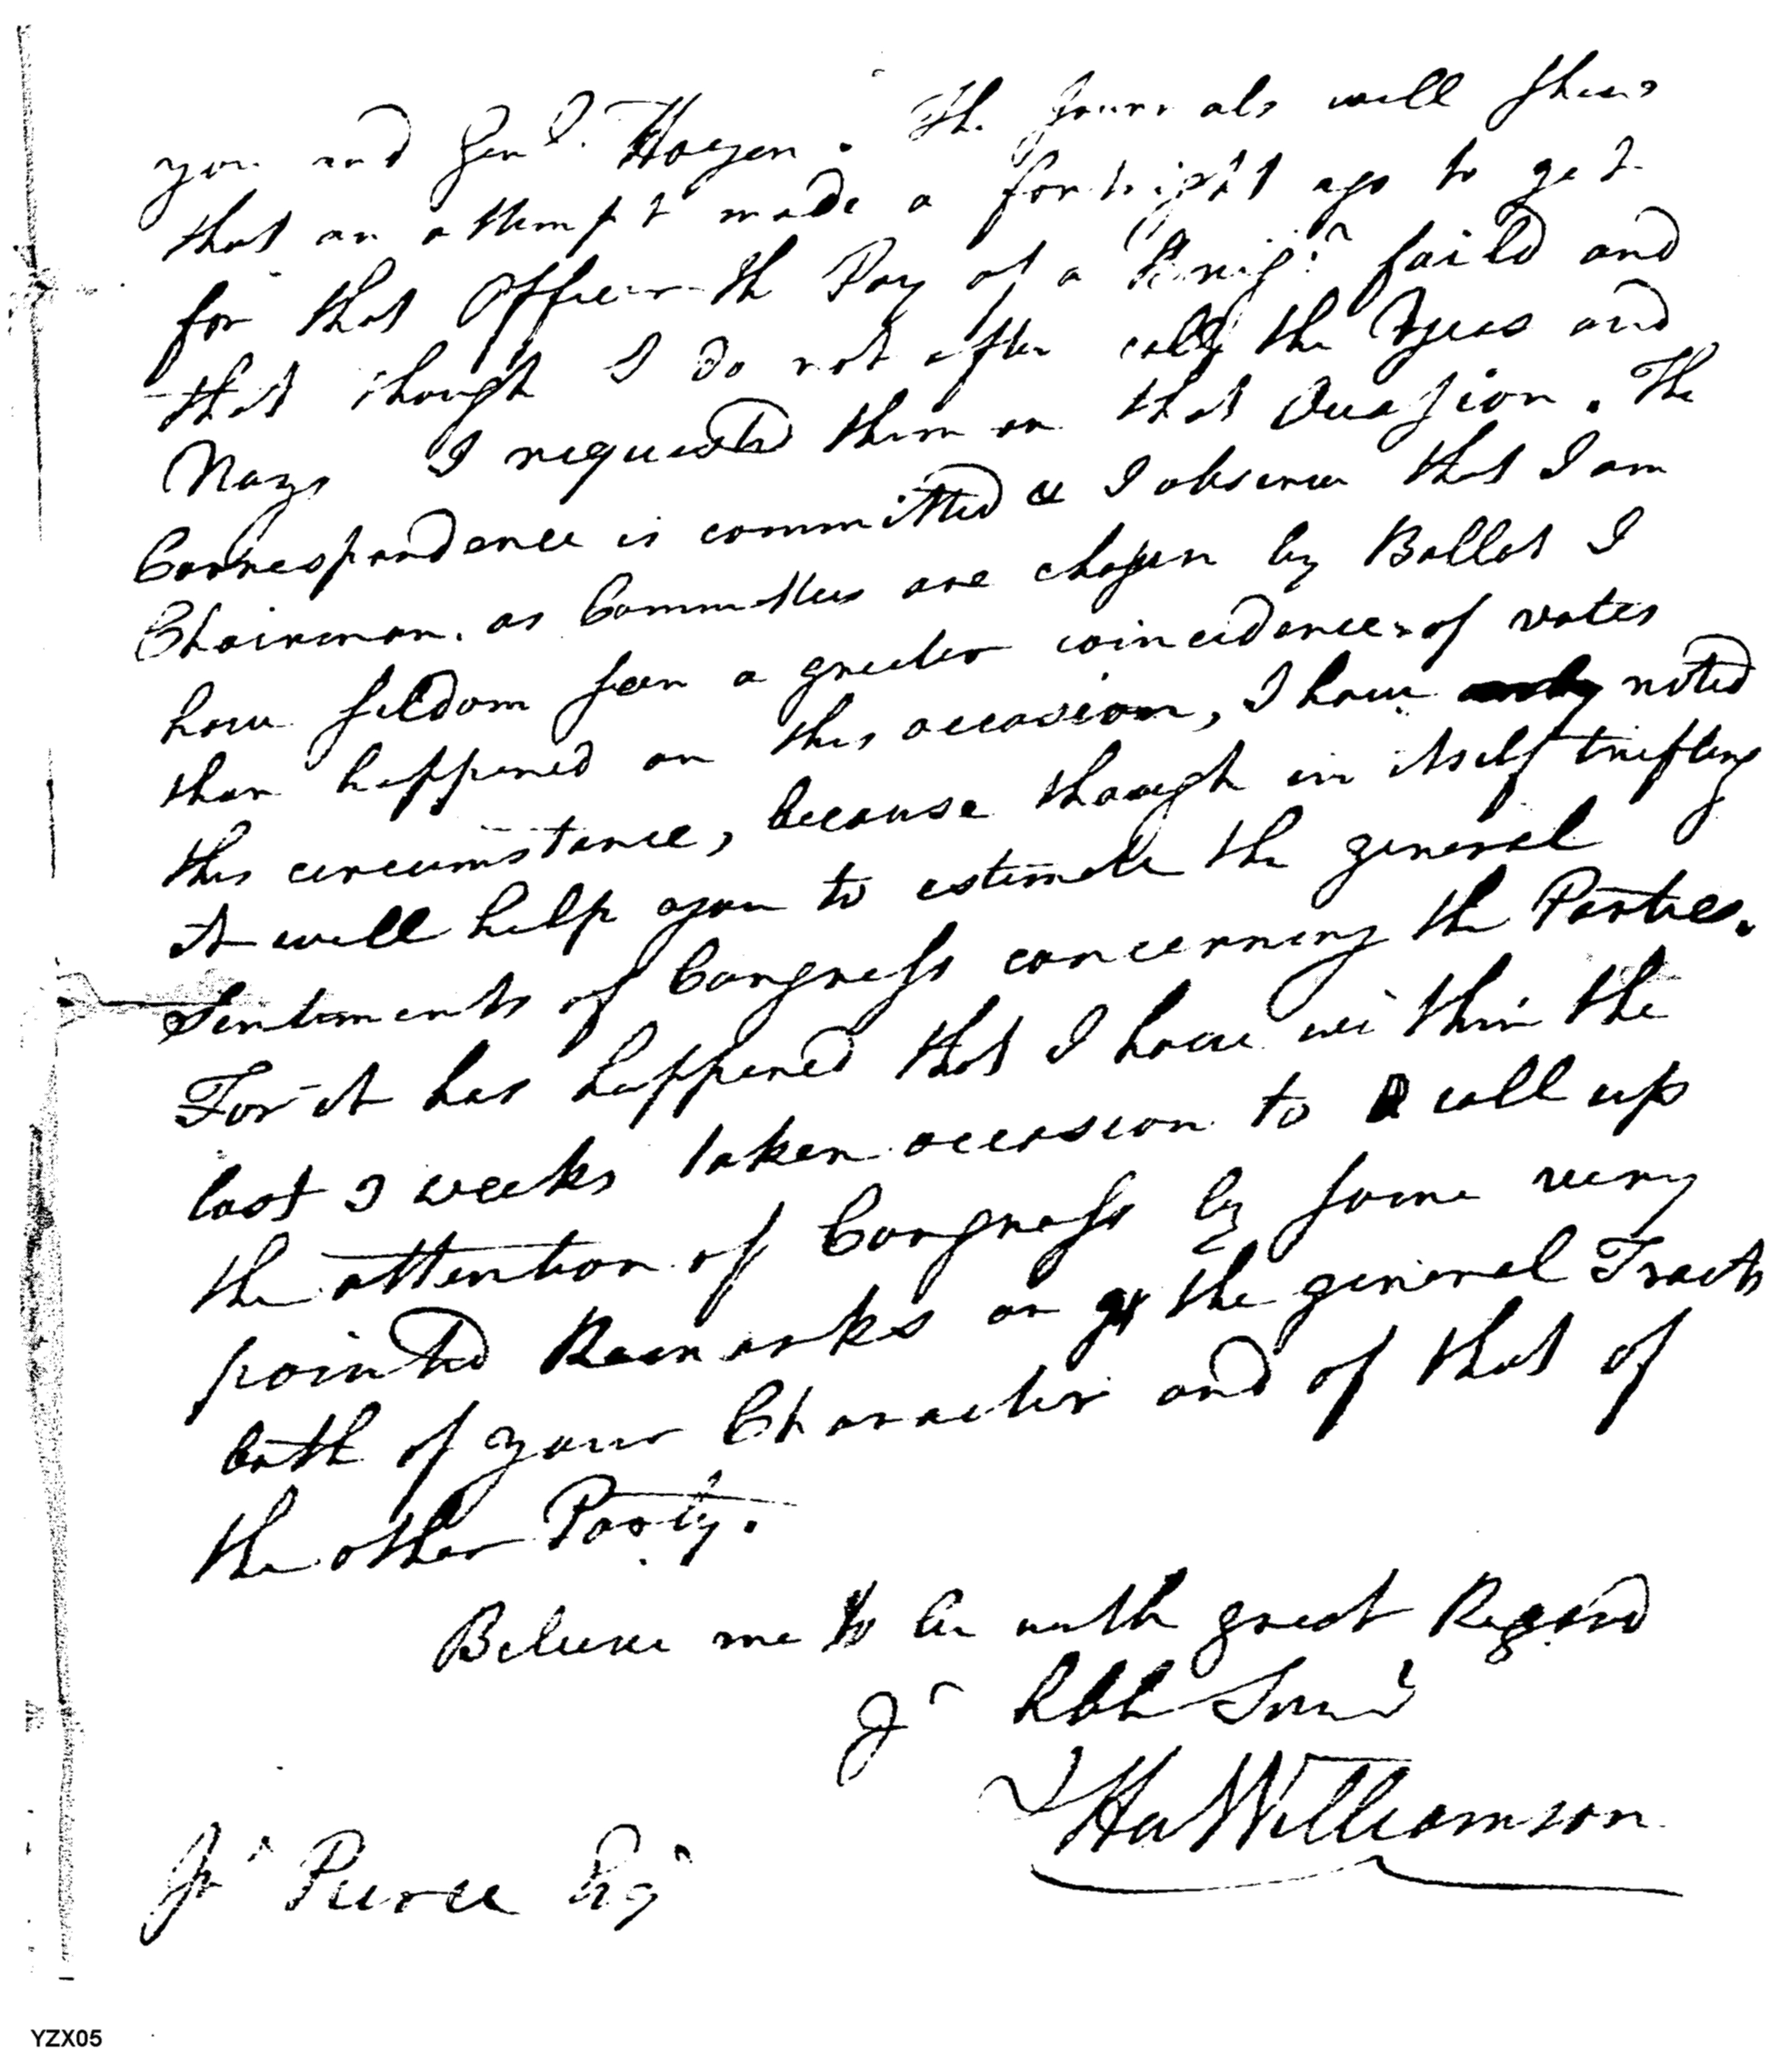 you and Genl. Hazen. The Journals will shew
that an attempt made a fortnight ago to get
for that Officer the Pay of a Brigr. faild and
that though I do not often call the Yeas and
Nays I requested them on that Question. The
Correspondence is committed & I observe that I am
Chairman. as Committees are chosen by Ballot I
have seldom seen a greater coincidence of votes
than happened on this occasion, I have noted
this circumstance, because though in itself trifling
it will help you to estimate the general
Sentiments of Congress concerning the Parties.
For it has happened that I have within the
last 3 weeks taken occasion to call up
the attention of Congress by some very
pointed Remarks on the general Tracts
both of your Character and of that of
the other Party.
Believe me to be with great Regard
Yr Obb Servt
Hu Williamson
Jn Pierce Esqr
YZX05